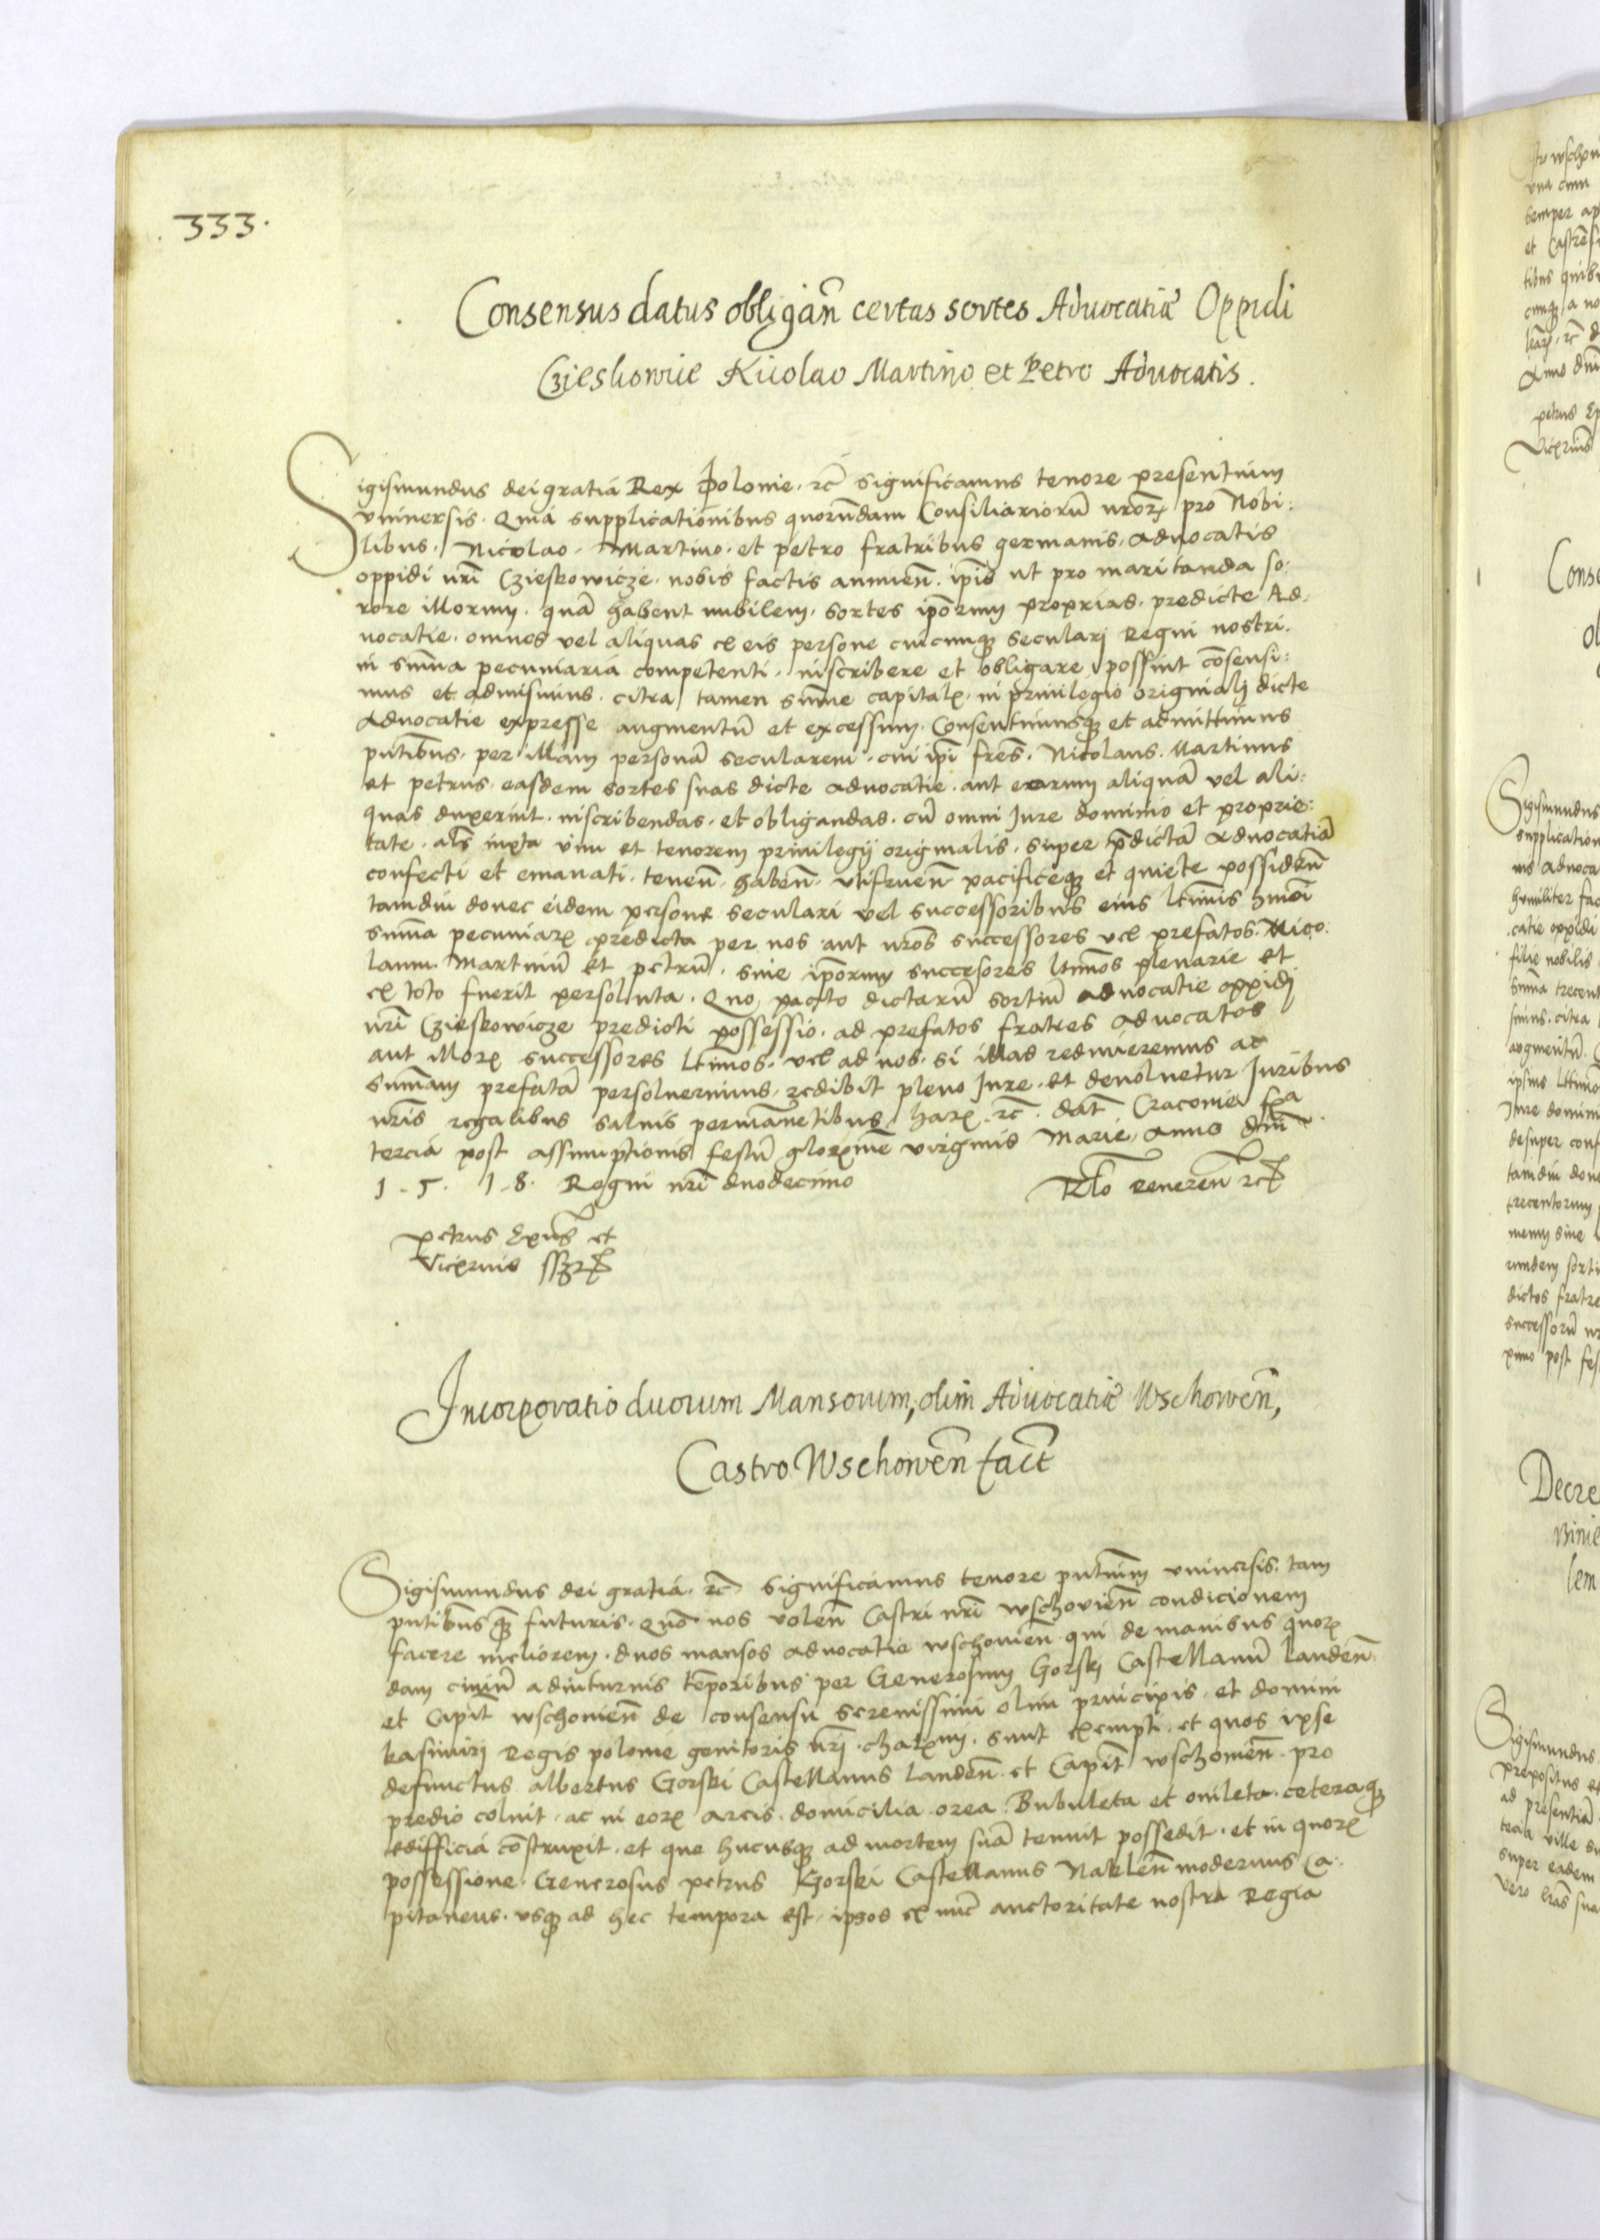 .333.
Consensus datus obligan̄ certas sortes Advocatiæ Oppidi
Czieskowie Nicolao Martino et Petro Advocatis.
Sigismundus dei gratia Rex Polonie. rc̄ significamus tenore presentium
vniuersis. Quia supplicationibus quorundam Consiliariorū nr̄orꝝ pro Nobi:
libus. Nicolao. Martino. et petro fratribus germanis. aduocatis
oppidi nr̄i Czieskowicze. nobis factis annuen̄. ip̄is vt pro maritanda so:
rore illorum. quā habent nubilem. sortes ip̄orum proprias. predicte Ad.
uocatie. omnes vel aliquas ex eis persone cuicunqꝫ seculari Regni nostri.
in sum̄a pecuniaria competenti. inscribere et obligare possint cōsensi:
mus et admisimus. citra tamen sum̄e capitalꝭ. in priuilegio originalj dicte
Aduocatie expresse augmentū et excessum. Consentimusqꝫ et admittimus
pn̄tibus. per illam personā secularem. cui ip̄i fr̄es. Nicolaus. Martinus
et petrus. easdem sortes suas dicte aduocatie. aut earum aliquā vel ali:
quas duxerint. inscribendas. et obligandas. cū omni Jure dominio et proprie:
tate. al̄s iuxta vim et tenorem priuilegij originalis. super p̄dictā aduocatiā
confecti et emanati. tenen̄. haben̄. vtifruen̄ pacificeqꝫ et quiete possiden̄
tamdiu donec eidem persone seculari vel successoribus eius lt̄imis hm̄oi
sum̄a pecuniarꝭ predicta per nos aut nr̄os successores vel prefatos. Nico.
laum Martinū et petrū. siue ip̄orum successores lt̄imos plenarie et
ex toto fuerit persoluta. Quo pacto dictarū sortiū aduocatie oppidj
nr̄i Czieskowicze predicti possessio. ad prefatos fratres aduocatos
aut illorꝝ successores lt̄imos. vel ad nos. si illas redimeremus ac
sum̄am prefatā persoluerimus. redibit pleno Jure. et deuoluetur Juribus
nr̄is regalibus saluis permanētibus. harꝝ rc̄. dat̄ Cracouie f̄a
tercia post assumptionis festū glorīme virginis Marie. anno dn̄i
1. 5. 1. 8. Regni nr̄i duodecimo Rl̄o reueren̄ rc̄
petrus Ep̄us et
Vicecrius ssz
Incorporatio duorum Mansorum, olim Advocatiæ Wschowen̄,
Castro Wschowen̄ fact̄
Sigismundus dei gratia. rc̄ significamus tenore pn̄tium vniuersis. tam
pn̄tibus qꝫ futuris. Quō nos volen̄ Castri nr̄i wschouien̄ condicionem
facere meliorem. duos mansos aduocatie wschouien̄ qui de manibus quorꝝ
dam ciuiū a diuturnis tēporibus per Generosum Gorskj Castellanū Landen̄
et Capit̄ wschouien̄ de consensu serenissimi olim principis. et domini
kasimirj Regis polonie genitoris nr̄j charīmi. sunt exempti. et quos ipse
defunctus albertus Gorski Castellanus Landen̄. et Capit̄ wschouien̄. pro
predio coluit. ac in eorꝝ arcis. domicilia. orea. Bubuleta et ouileta. ceteraqꝫ
edifficia cōstruxit. et que hucusqꝫ ad mortem suā tenuit possedit. et in quorꝝ
possessione. Generosus petrus Gorski Castellanus Naklen̄ modernus Ca.
pitaneus. vsqꝫ ad hec tempora est. ipsos ex nūc auctoritate nostra Regia